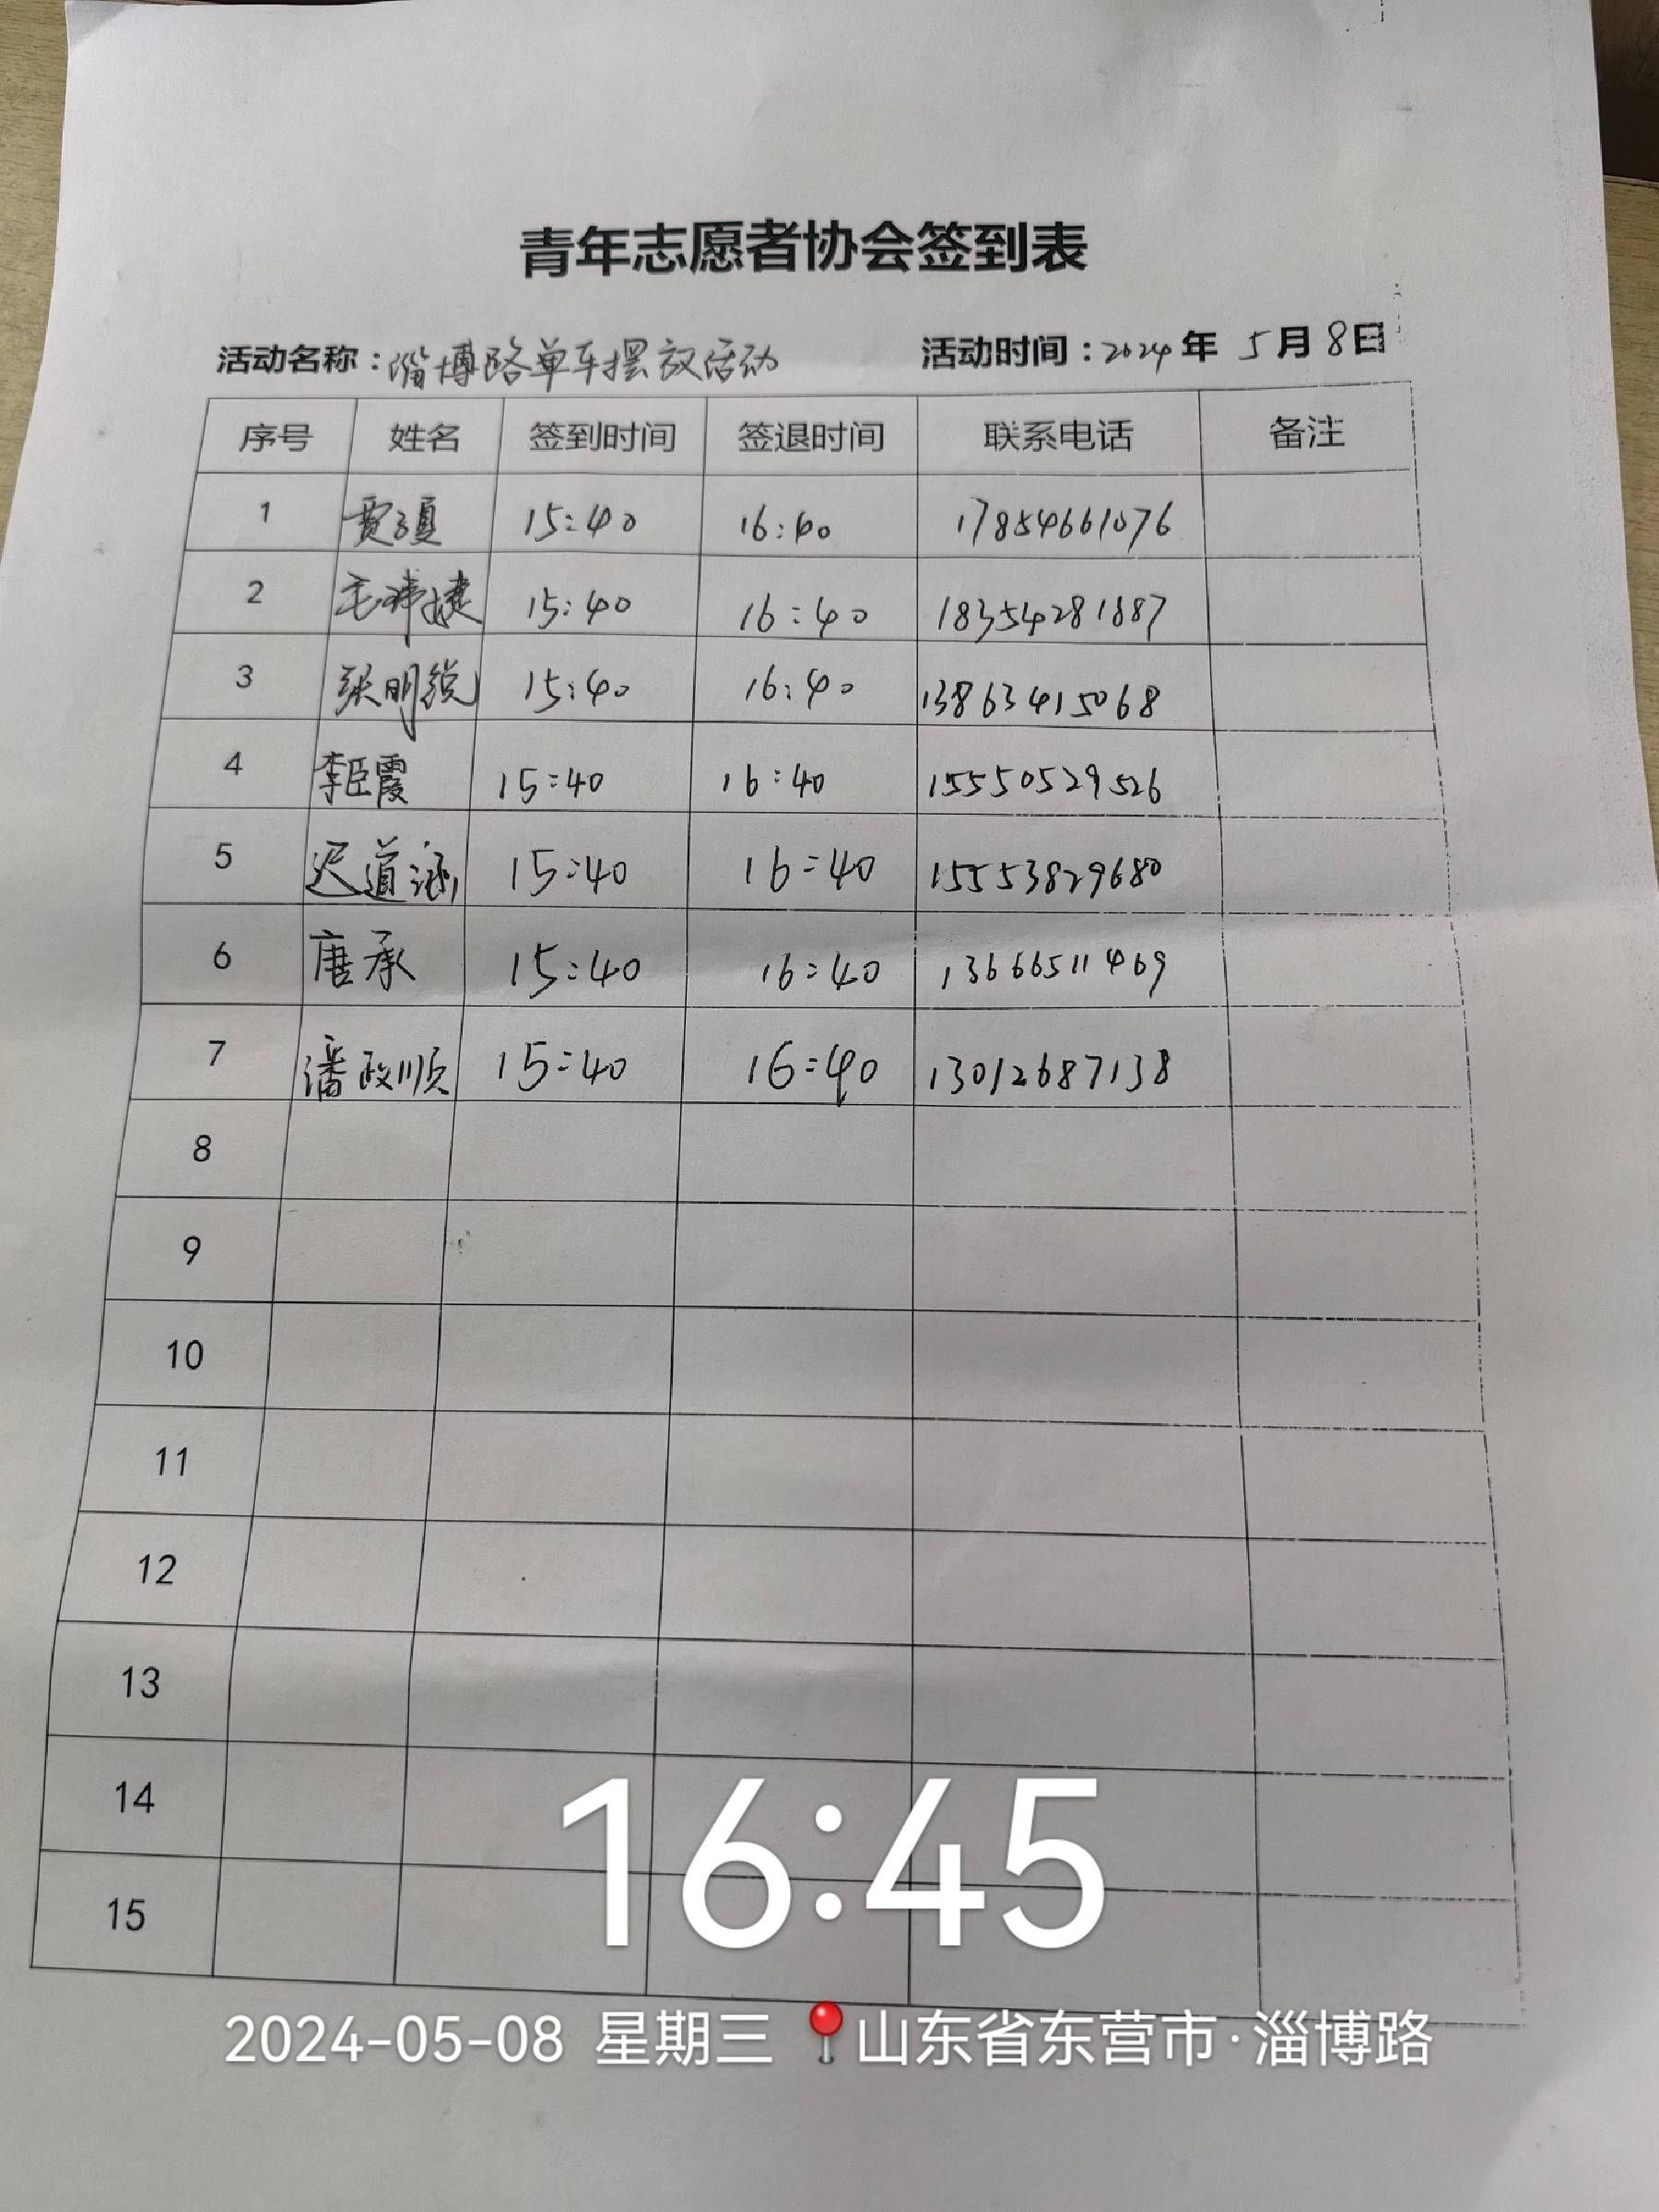 青年志愿者协会签到表
活动名称：淄博路单车摆放活动 活动时间：2024年 5月8日
序号 姓名 签到时间 签退时间 联系电话 备注
1 15:40 16:40 17854661076
2 15:40 16:40 18354281887
3 张明锐 15:40 16:40 13863415068
4 李臣霞 15:40 16:40 15550529526
5 迟道涵 15:40 16:40 15553829680
6 唐承 15:40 16:40 13666511469
7 潘政顺 15:40 16:40 13012687138
8
9
10
11
12
13
14
15
16:45
2024-05-08 星期三 山东省东营市·淄博路